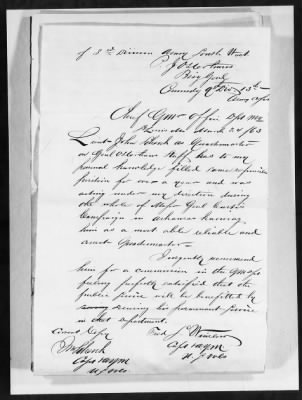 of 3rd Division Army South West
P J Osterhaus
Brig Genl
Comdg 9th Div 13th
Army Corps
Chief Qm Office Dept Mo
March 24/63
Lieut John as Quartermaster
on Genl Osterhaus Staff has to my
personal knowledge filled same responsible
position for over a year and was
acting under my direction during
the whole of Major Genl Curtis
Campaign in Arkansas
him as a most able reliable and
Quartermaster
I urgently recommend
him for a commission in the
feeling perfectly satisfied that the
public service will be benefitted by
securing his permanent service
in that department.
Fred
Capt
Capt
U. S. Vols